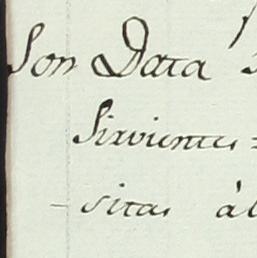 Son Data
Sirvientes =
- sitas